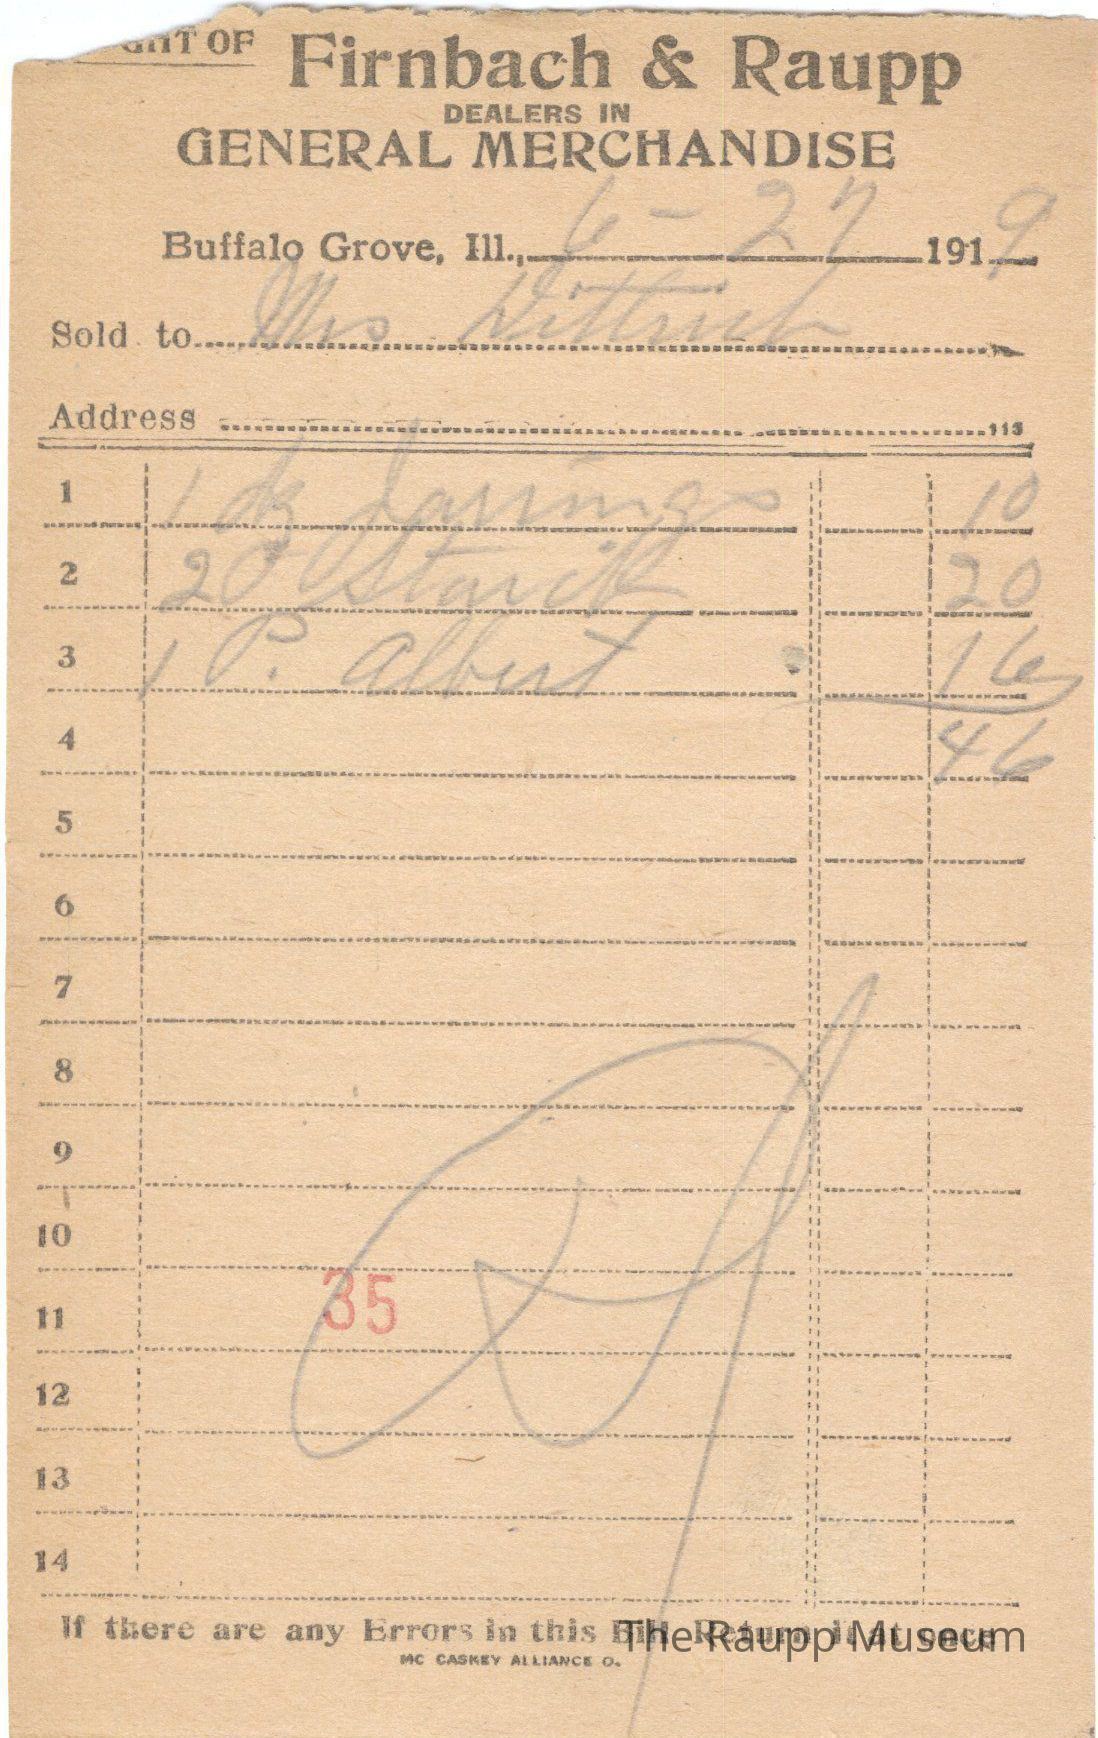 GHT OF Firnbach & Raupp
DEALERS IN
GENERAL MERCHANDISE
Buffalo Grove, Ill., 6-27 1919
Sold to Mrs Dittrich
Address 115
1 1 dz 10
2 20 Starch 20
3 1 P. Albert 16
4 46
5
6
7
8
9
10
11 35
12
13
14
If there are any Errors in this Bill Return it at once
The Raupp Museum
MC CASKEY ALLIANCE O.